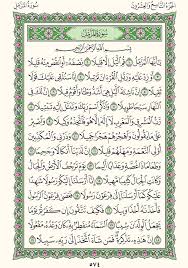 الجزء التاسع والعشرون سورة المزمل
سورة المزمل
بسم الله الرحمن الرحيم
يَٰٓأَيُّهَا ٱلْمُزَّمِّلُ ١ قُمِ ٱلَّيْلَ إِلَّا قَلِيلًا ٢ نِّصْفَهُۥٓ أَوِ ٱنقُصْ مِنْهُ قَلِيلًا
٣ أَوْ زِدْ عَلَيْهِ وَرَتِّلِ ٱلْقُرْءَانَ تَرْتِيلًا ٤ إِنَّا سَنُلْقِى عَلَيْكَ قَوْلًا
ثَقِيلًا ٥ إِنَّ نَاشِئَةَ ٱلَّيْلِ هِىَ أَشَدُّ وَطْـًٔا وَأَقْوَمُ قِيلًا ٦ إِنَّ لَكَ
فِى ٱلنَّهَارِ سَبْحًا طَوِيلًا ٧ وَٱذْكُرِ ٱسْمَ رَبِّكَ وَتَبَتَّلْ إِلَيْهِ تَبْتِيلًا
٨ رَّبُّ ٱلْمَشْرِقِ وَٱلْمَغْرِبِ لَآ إِلَٰهَ إِلَّا هُوَ فَٱتَّخِذْهُ وَكِيلًا ٩ وَٱصْبِرْ
عَلَىٰ مَا يَقُولُونَ وَٱهْجُرْهُمْ هَجْرًا جَمِيلًا ١٠ وَذَرْنِى وَٱلْمُكَذِّبِينَ
أُو۟لِى ٱلنَّعْمَةِ وَمَهِّلْهُمْ قَلِيلًا ١١ إِنَّ لَدَيْنَآ أَنكَالًا وَجَحِيمًا ١٢
وَطَعَامًا ذَا غُصَّةٍ وَعَذَابًا أَلِيمًا ١٣ يَوْمَ تَرْجُفُ ٱلْأَرْضُ
وَٱلْجِبَالُ وَكَانَتِ ٱلْجِبَالُ كَثِيبًا مَّهِيلًا ١٤ إِنَّآ أَرْسَلْنَآ إِلَيْكُمْ
رَسُولًا شَٰهِدًا عَلَيْكُمْ كَمَآ أَرْسَلْنَآ إِلَىٰ فِرْعَوْنَ رَسُولًا ١٥ فَعَصَىٰ
فِرْعَوْنُ ٱلرَّسُولَ فَأَخَذْنَٰهُ أَخْذًا وَبِيلًا ١٦ فَكَيْفَ تَتَّقُونَ إِن كَفَرْتُمْ يَوْمًا
يَجْعَلُ ٱلْوِلْدَٰنَ شِيبًا ١٧ ٱلسَّمَآءُ مُنفَطِرٌۢ بِهِۦ كَانَ وَعْدُهُۥ مَفْعُولًا
١٨ إِنَّ هَٰذِهِۦ تَذْكِرَةٌ فَمَن شَآءَ ٱتَّخَذَ إِلَىٰ رَبِّهِۦ سَبِيلًا ١٩
٥٧٤